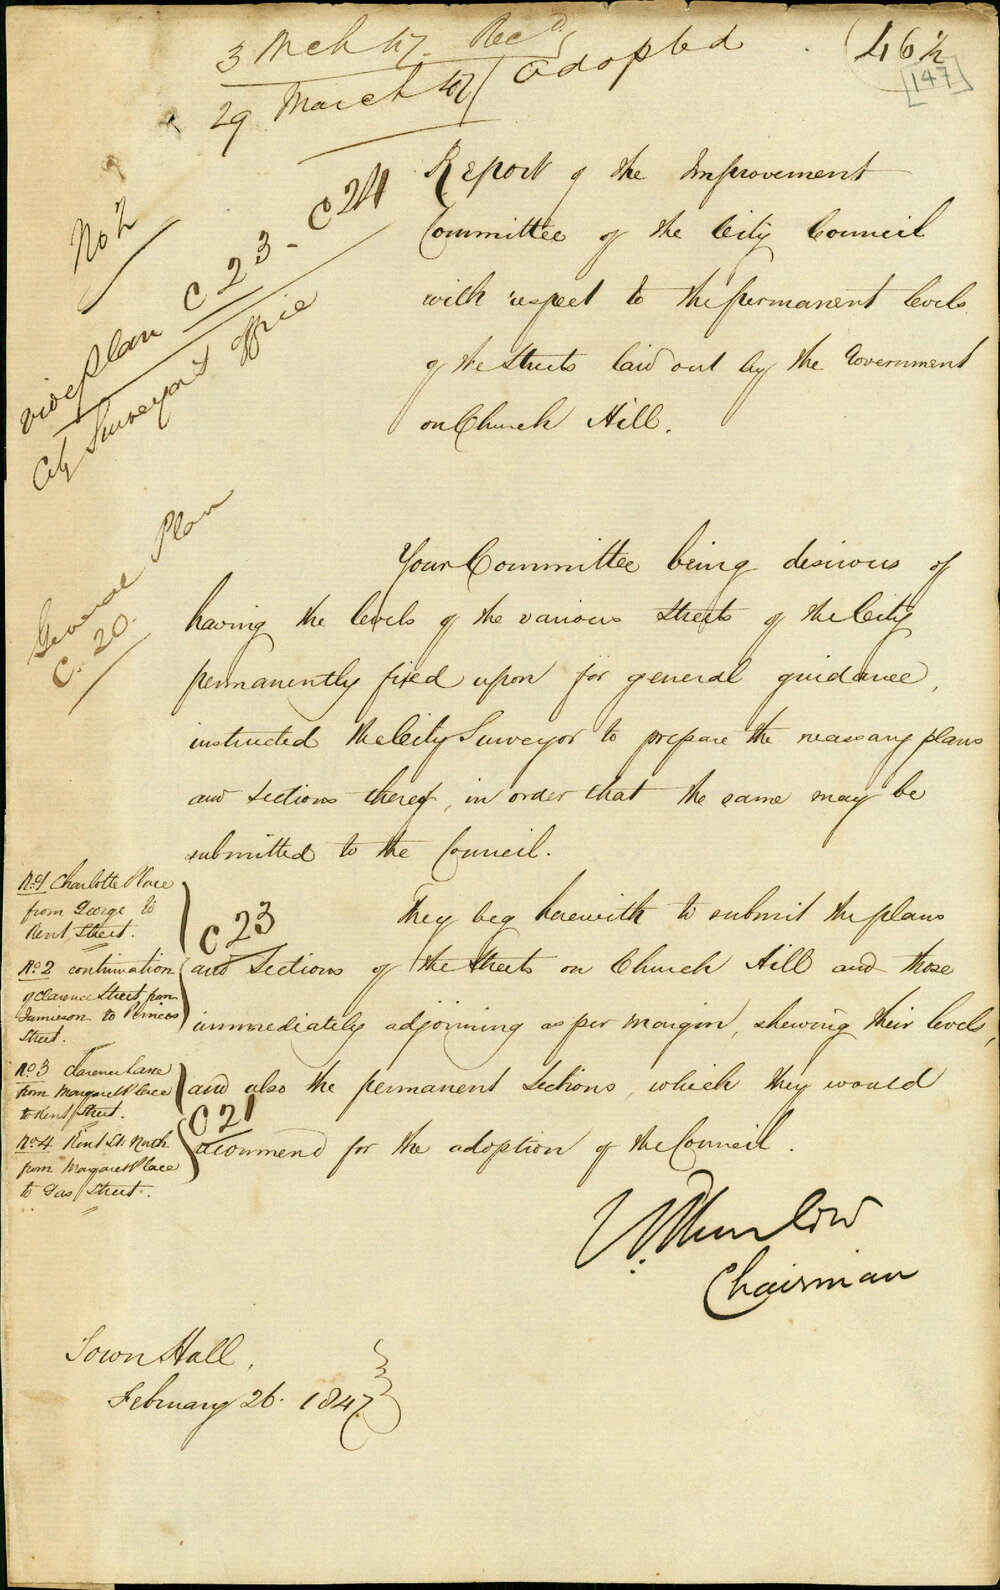 3 Mch 47 Recd
29 March 47 / adopted
46 1/2
[147]
No 2
vide plan C 23 - C 24
City Surveyors office
General Plan
C. 20.
Report of the Improvement
Committee of the City Council
with respect to the permanent levels
of the Streets laid out by the Government
on Church Hill.
Your Committee being desirous of
having the levels of the various Streets of the City
permanently fixed upon for general guidance,
instructed the City Surveyor to prepare the necessary plans
and sections thereof, in order that the same may be
submitted to the Council.
They beg herewith to submit the plans
and Sections of the Streets on Church Hill and those
immediately adjoining as per margin, shewing their levels,
and also the permanent Sections, which they would
recommend for the adoption of the Council.
No 1 Charlotte Place
from George to
Kent Street.
C 23
No 2 continuation
of Clarence Street from
Jamieson to Princes
Street.
No 3 Clarence Lane
from Margaret Place
to Kent Street.
C 21
No 4 Kent St. North
from Margaret Place
to Gas Street.
Thurlow
Chairman
Town Hall,
February 26. 1847